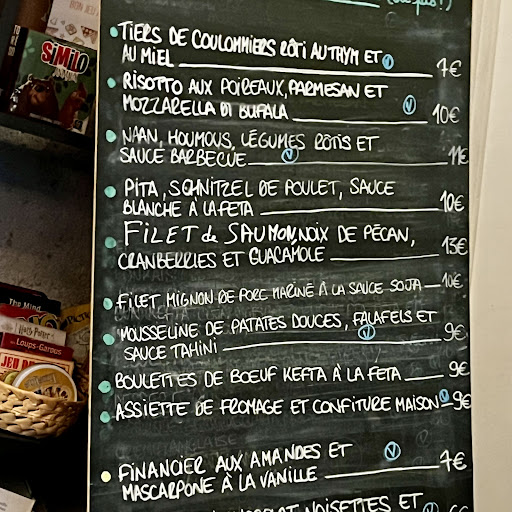 BON JEU
SiMiLO
TIERS DE COULOMMIERS RÔTI AU THYM ET Ⓥ
AU MIEL 7€
RISOTTO AUX POIREAUX, PARMESAN ET
MOZZARELLA DI BUFALA Ⓥ 10€
NAAN, HOUMOUS, LÉGUMES RÔTIS ET
SAUCE BARBECUE Ⓥ 11€
PITA, SCHNITZEL DE POULET, SAUCE
BLANCHE À LA FETA 10€
FILET de SAUMON, NOIX DE PÉCAN,
CRANBERRIES ET GUACAMOLE 13€
FILET MIGNON DE PORC MARINÉ À LA SAUCE SOJA 10€
MOUSSELINE DE PATATES DOUCES, FALAFELS ET
SAUCE TAHINI Ⓥ 9€
BOULETTES DE BOEUF KEFTA À LA FETA 9€
ASSIETTE DE FROMAGE ET CONFITURE MAISON Ⓥ 9€
FINANCIER AUX AMANDES ET Ⓥ
MASCARPONE À LA VANILLE 7€
NOISETTES ET
The Mind
Harry Potter
Loups-Garous
JEU DE